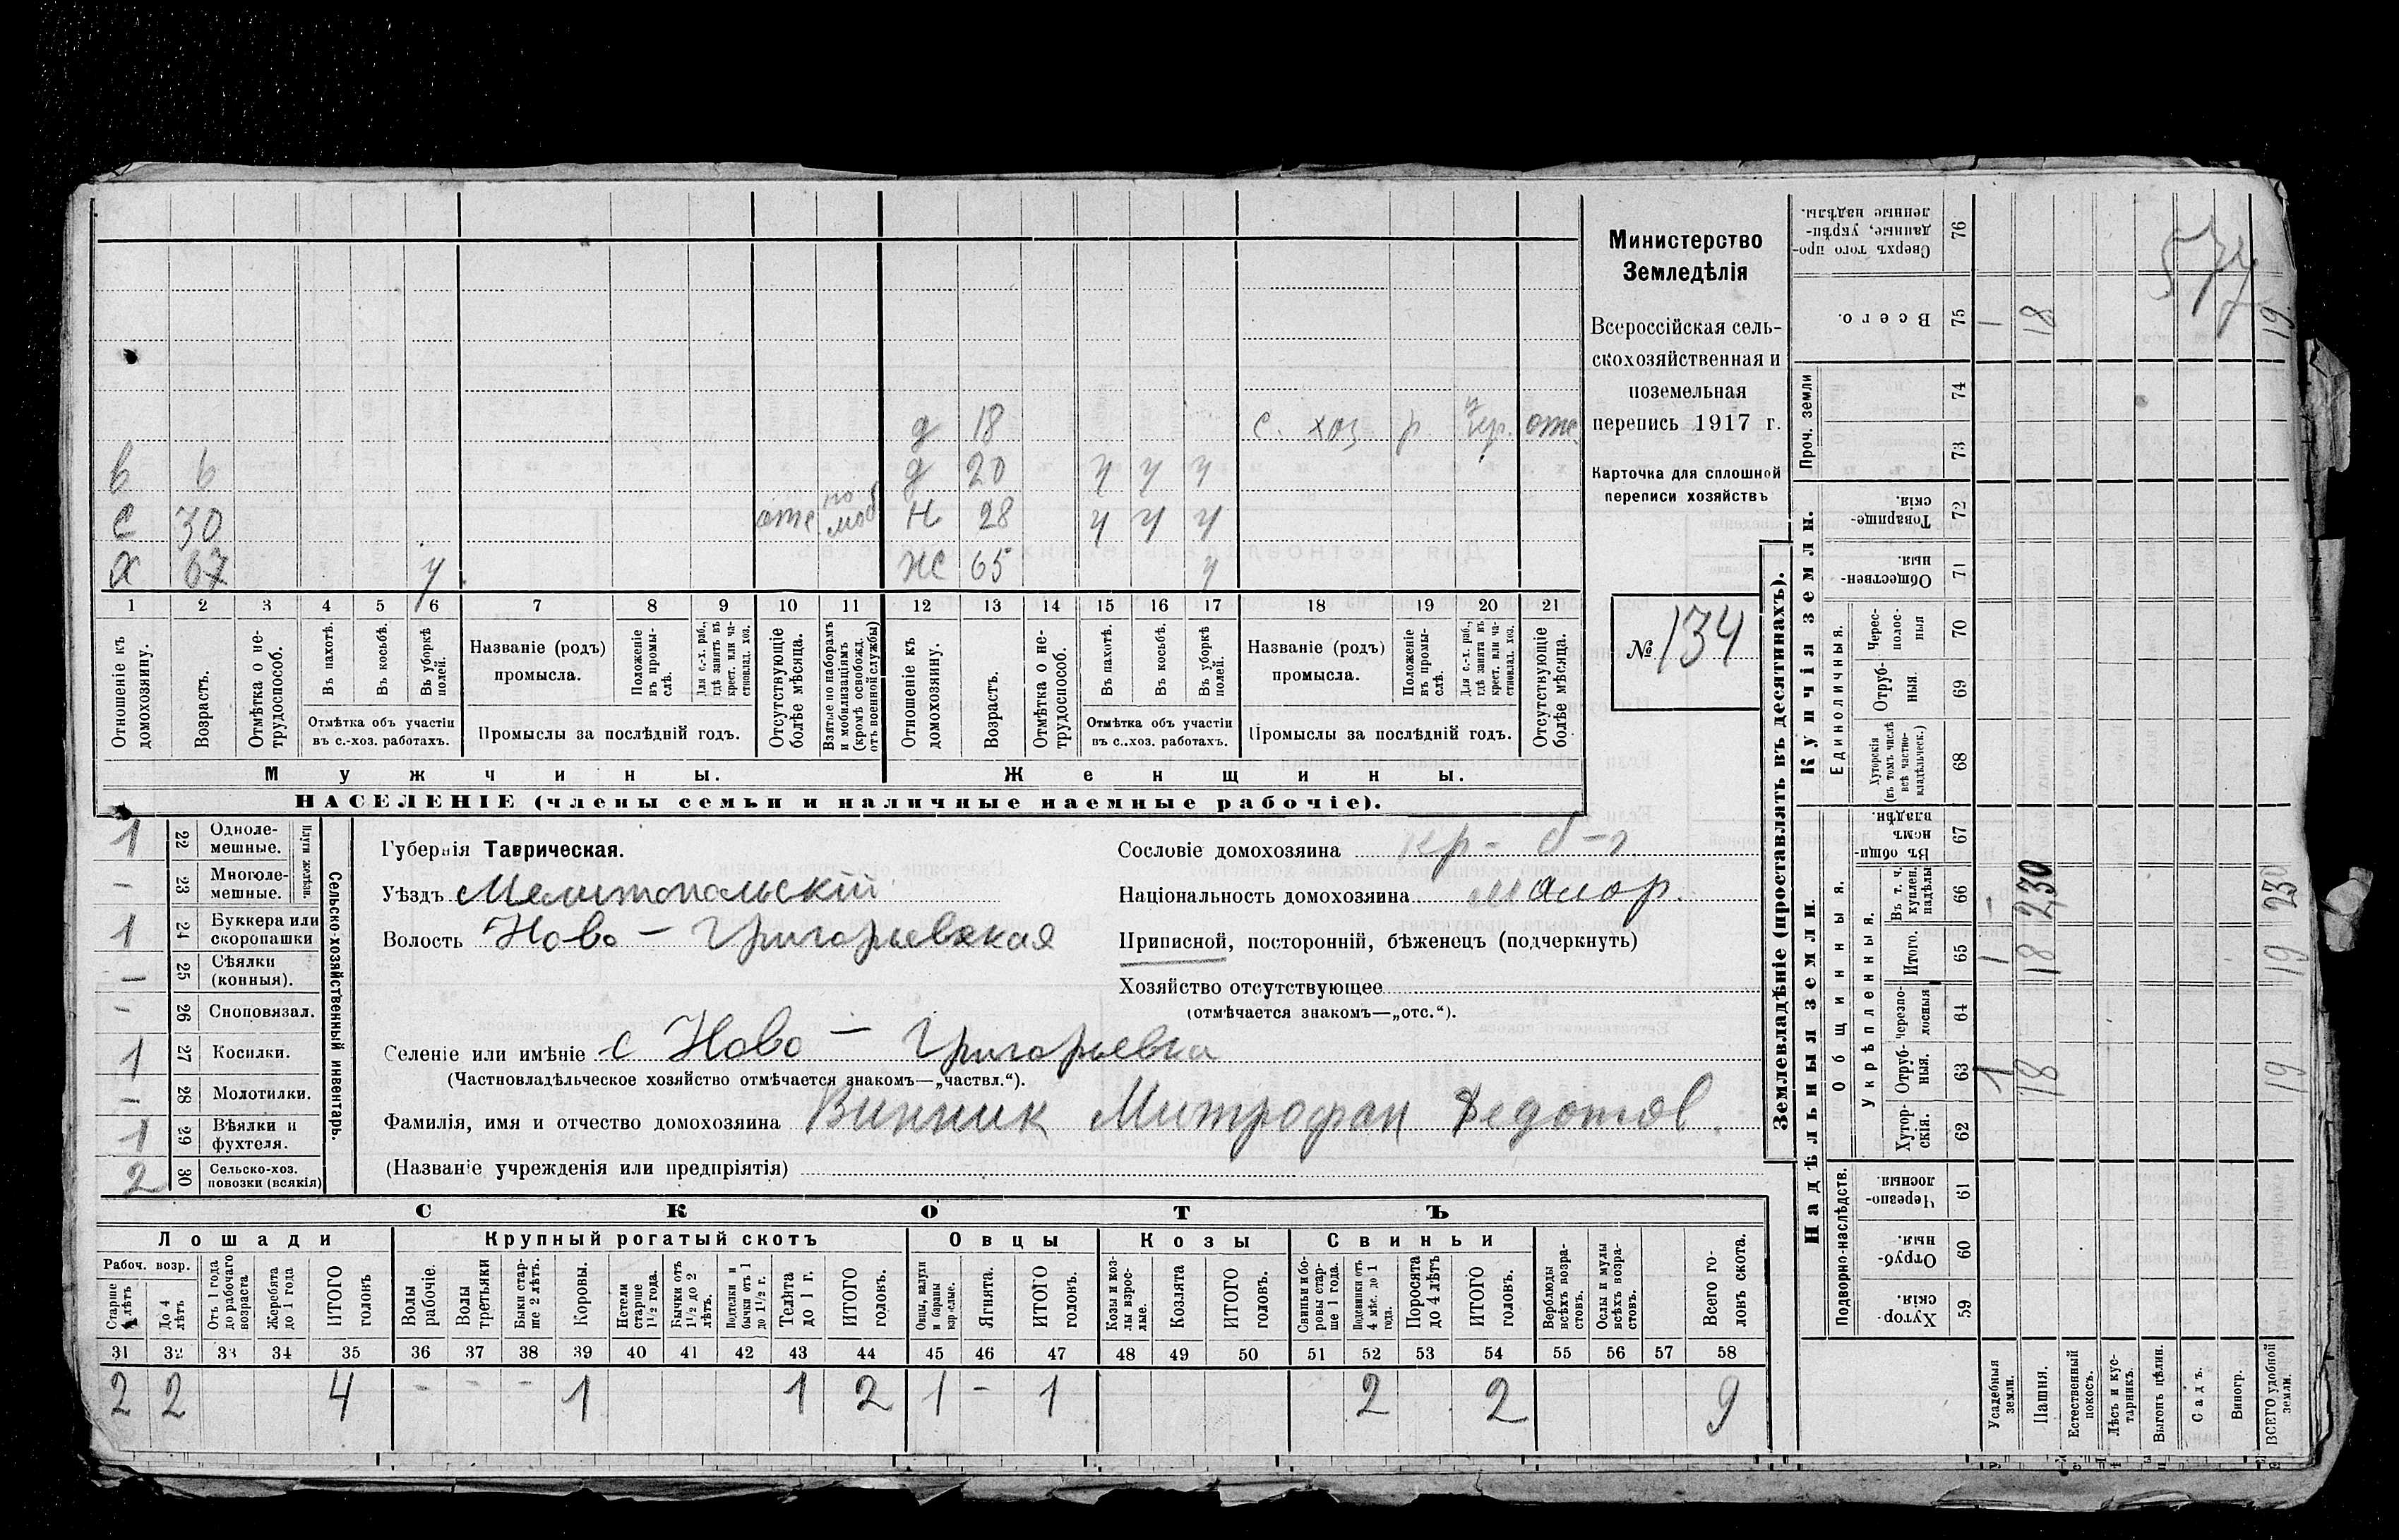 Министерство
Земледѣлія
Всероссійская сель-
скохозяйственная и
поземельная
перепись 1917 г.
Карточка для сплошной
переписи хозяйствъ
№ 134
д 18 с. хоз р отс
в 6 д 20 ч ч ч
с 30 отс по моб н 28 ч ч ч
х 67 ч ж 65 ч
1 2 3 4 5 6 7 8 9 10 11 12 13 14 15 16 17 18 19 20 21
Отношеніе къ домохозяину.
Возрастъ.
Отмѣтка о не-трудоспособ.
Въ пахотѣ.
Въ косьбѣ.
Въ уборкѣ полей.
Отмѣтка объ участіи въ с.-хоз. работахъ.
Названіе (родъ) промысла.
Положеніе въ промы-слѣ.
Для с.-х. раб., гдѣ занятъ въ крест. или ча-стновлад. хоз.
Промыслы за послѣдній годъ.
Отсутствующіе болѣе мѣсяца.
Взятые по наборамъ и мобилизаціямъ (кромѣ освобожд. отъ военной службы)
Отношеніе къ домохозяину.
Возрастъ.
Отмѣтка о не-трудоспособ.
Въ пахотѣ.
Въ косьбѣ.
Въ уборкѣ полей.
Отмѣтка объ участіи въ с.-хоз. работахъ.
Названіе (родъ) промысла.
Положеніе въ промы-слѣ.
Для с.-х. раб., гдѣ занята въ крест. или ча-стновлад. хоз.
Промыслы за послѣдній годъ.
Отсутствующіе болѣе мѣсяца.
Мужчины. Женщины.
НАСЕЛЕНІЕ (члены семьи и наличные наемные рабочіе).
Сельско-хозяйственный инвентарь.
Плуги желѣзн.
1 22 Одноле-мешные.
– 23 Многоле-мешные.
1 24 Буккера или скоропашки
– 25 Сѣялки (конныя).
– 26 Сноповязал.
1 27 Косилки.
– 28 Молотилки.
1 29 Вѣялки и фухтеля.
2 30 Сельско-хоз. повозки (всякія)
Губернія Таврическая.
Уѣздъ Мелитопольскій
Волость Ново – Григорьевская
Селеніе или имѣніе с Ново – Григорьевка
(Частновладѣльческое хозяйство отмѣчается знакомъ—„частвл.“).
Фамилія, имя и отчество домохозяина Винник Митрофан Федотов.
(Названіе учрежденія или предпріятія)
Сословіе домохозяина кр-
Національность домохозяина малор.
Приписной, посторонній, бѣженецъ (подчеркнуть)
Хозяйство отсутствующее
(отмѣчается знакомъ—„отс.“).
СКОТЪ
Лошади Крупный рогатый скотъ Овцы Козы Свиньи
Рабоч. возр.
Старше 4 лѣтъ
До 4 лѣтъ
Отъ 1 года до рабочаго возраста
Жеребята до 1 года
ИТОГО головъ
Волы рабочіе.
Волы третьяки
Быки стар-ше 2 лѣтъ.
Коровы.
Нетели старше 1½ года.
Бычки отъ 1½ до 2 лѣтъ.
Подтелки и бычки отъ 1 до 1½ г.
Телята до 1 г.
ИТОГО головъ.
Овцы, валухи и бараны взрослые.
Ягнята.
ИТОГО головъ.
Козы и коз-лы взрос-лые.
Козлята
ИТОГО головъ.
Свиньи и бо-ровы стар-ше 1 года.
Подсвинки отъ 4 мѣс. до 1 года.
Поросята до 4 лѣтъ
ИТОГО головъ.
Верблюды всѣхъ возра-стовъ.
Ослы и мулы всѣхъ возра-стовъ.
Всего го-ловъ скота.
31 32 33 34 35 36 37 38 39 40 41 42 43 44 45 46 47 48 49 50 51 52 53 54 55 56 57 58
2 2 4 – – – 1 1 2 1 – 1 2 2 9
Землевладѣніе (проставлять въ десятинахъ).
Купчія земли.
Надѣльныя земли.
Сверхъ того про-данные, укрѣп-ленные надѣлы. 76
Всего. 75 1 18 19
Проч. земли 74
73
Товарище-скія. 72
Обществен-ныя. 71
Единоличныя.
Черес-полос-ныя 70
Отруб-ныя. 69
Хуторскія (въ томъ числѣ всѣ частно-владѣльческ.) 68
Общинныя.
Въ общи-номъ владѣн. 67
Укрѣпленныя.
Въ т. ч. куплен. надѣлы 66 – 2,30 230
Итого. 65 1 18 19
Черезпо-лосныя 64
Отруб-ныя. 63 1 18 19
Хутор-скія. 62
Подворно-наслѣдств.
Черезпо-лосныя 61
Отруб-ныя. 60
Хутор-скія. 59
Усадебныя земли.
Пашня.
Естественный покосъ.
Лѣсъ и кус-тарникъ.
Выгонъ цѣлин.
Садъ.
Виногр.
ВСЕГО удобной земли.